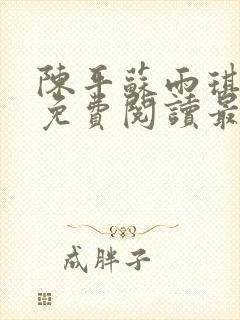 陳平蘇雨琪
免費閱讀最
成胖子